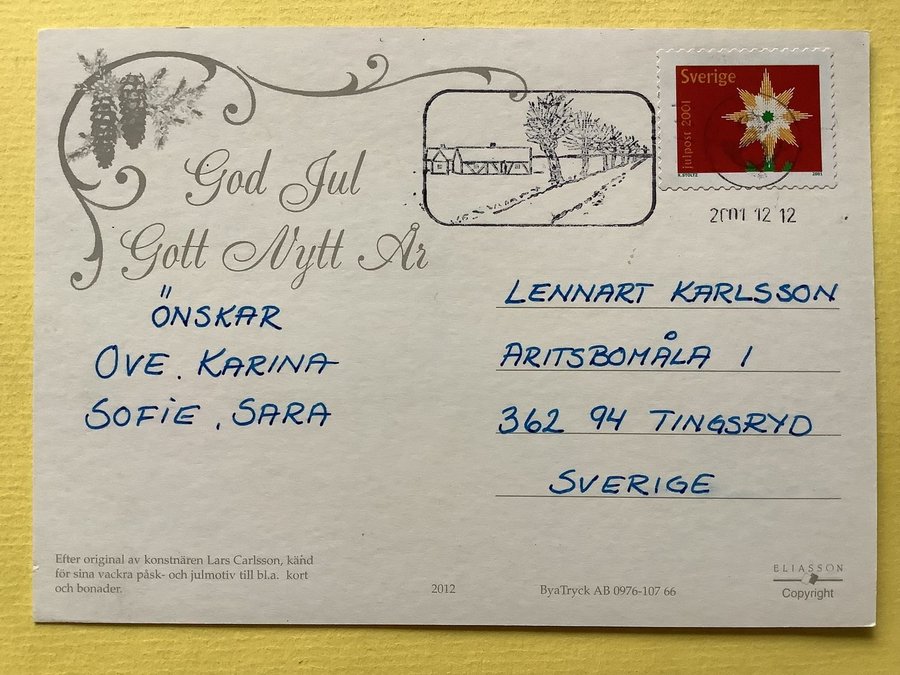 God Jul
Gott Nytt År
ÖNSKAR
OVE. KARINA
SOFIE, SARA
Sverige
julpost 2001
2001
2001 12 12
LENNART KARLSSON
ARITSBOMÅLA 1
362 94 TINGSRYD
SVERIGE
Efter original av konstnären Lars Carlsson, känd
för sina vackra påsk- och julmotiv till bl.a. kort
och bonader.
2012
ByaTryck AB 0976-107 66
ELIASSON
Copyright